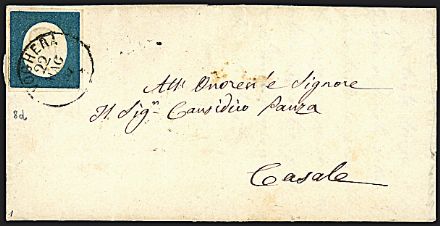 VOGHERA
22
AG
8d
All' Onoren'e Signore
Il Sig.n Causidico Panza
Casale
1